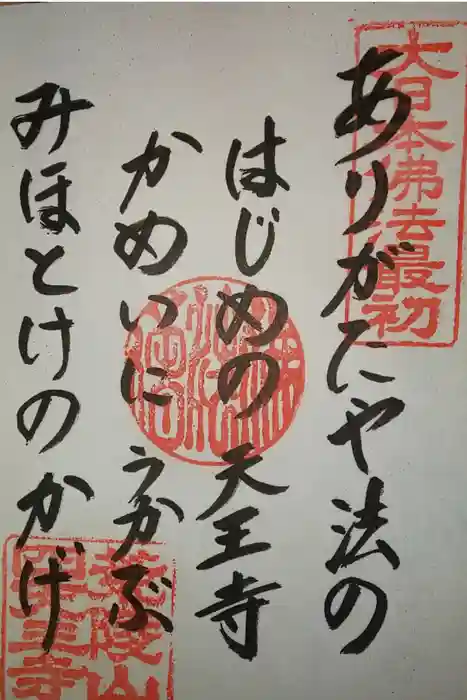 大日本佛法最初
ありがたや法の
はじめの天王寺
かめいにうかぶ
みほとけのかげ
荒陵山
四天王寺